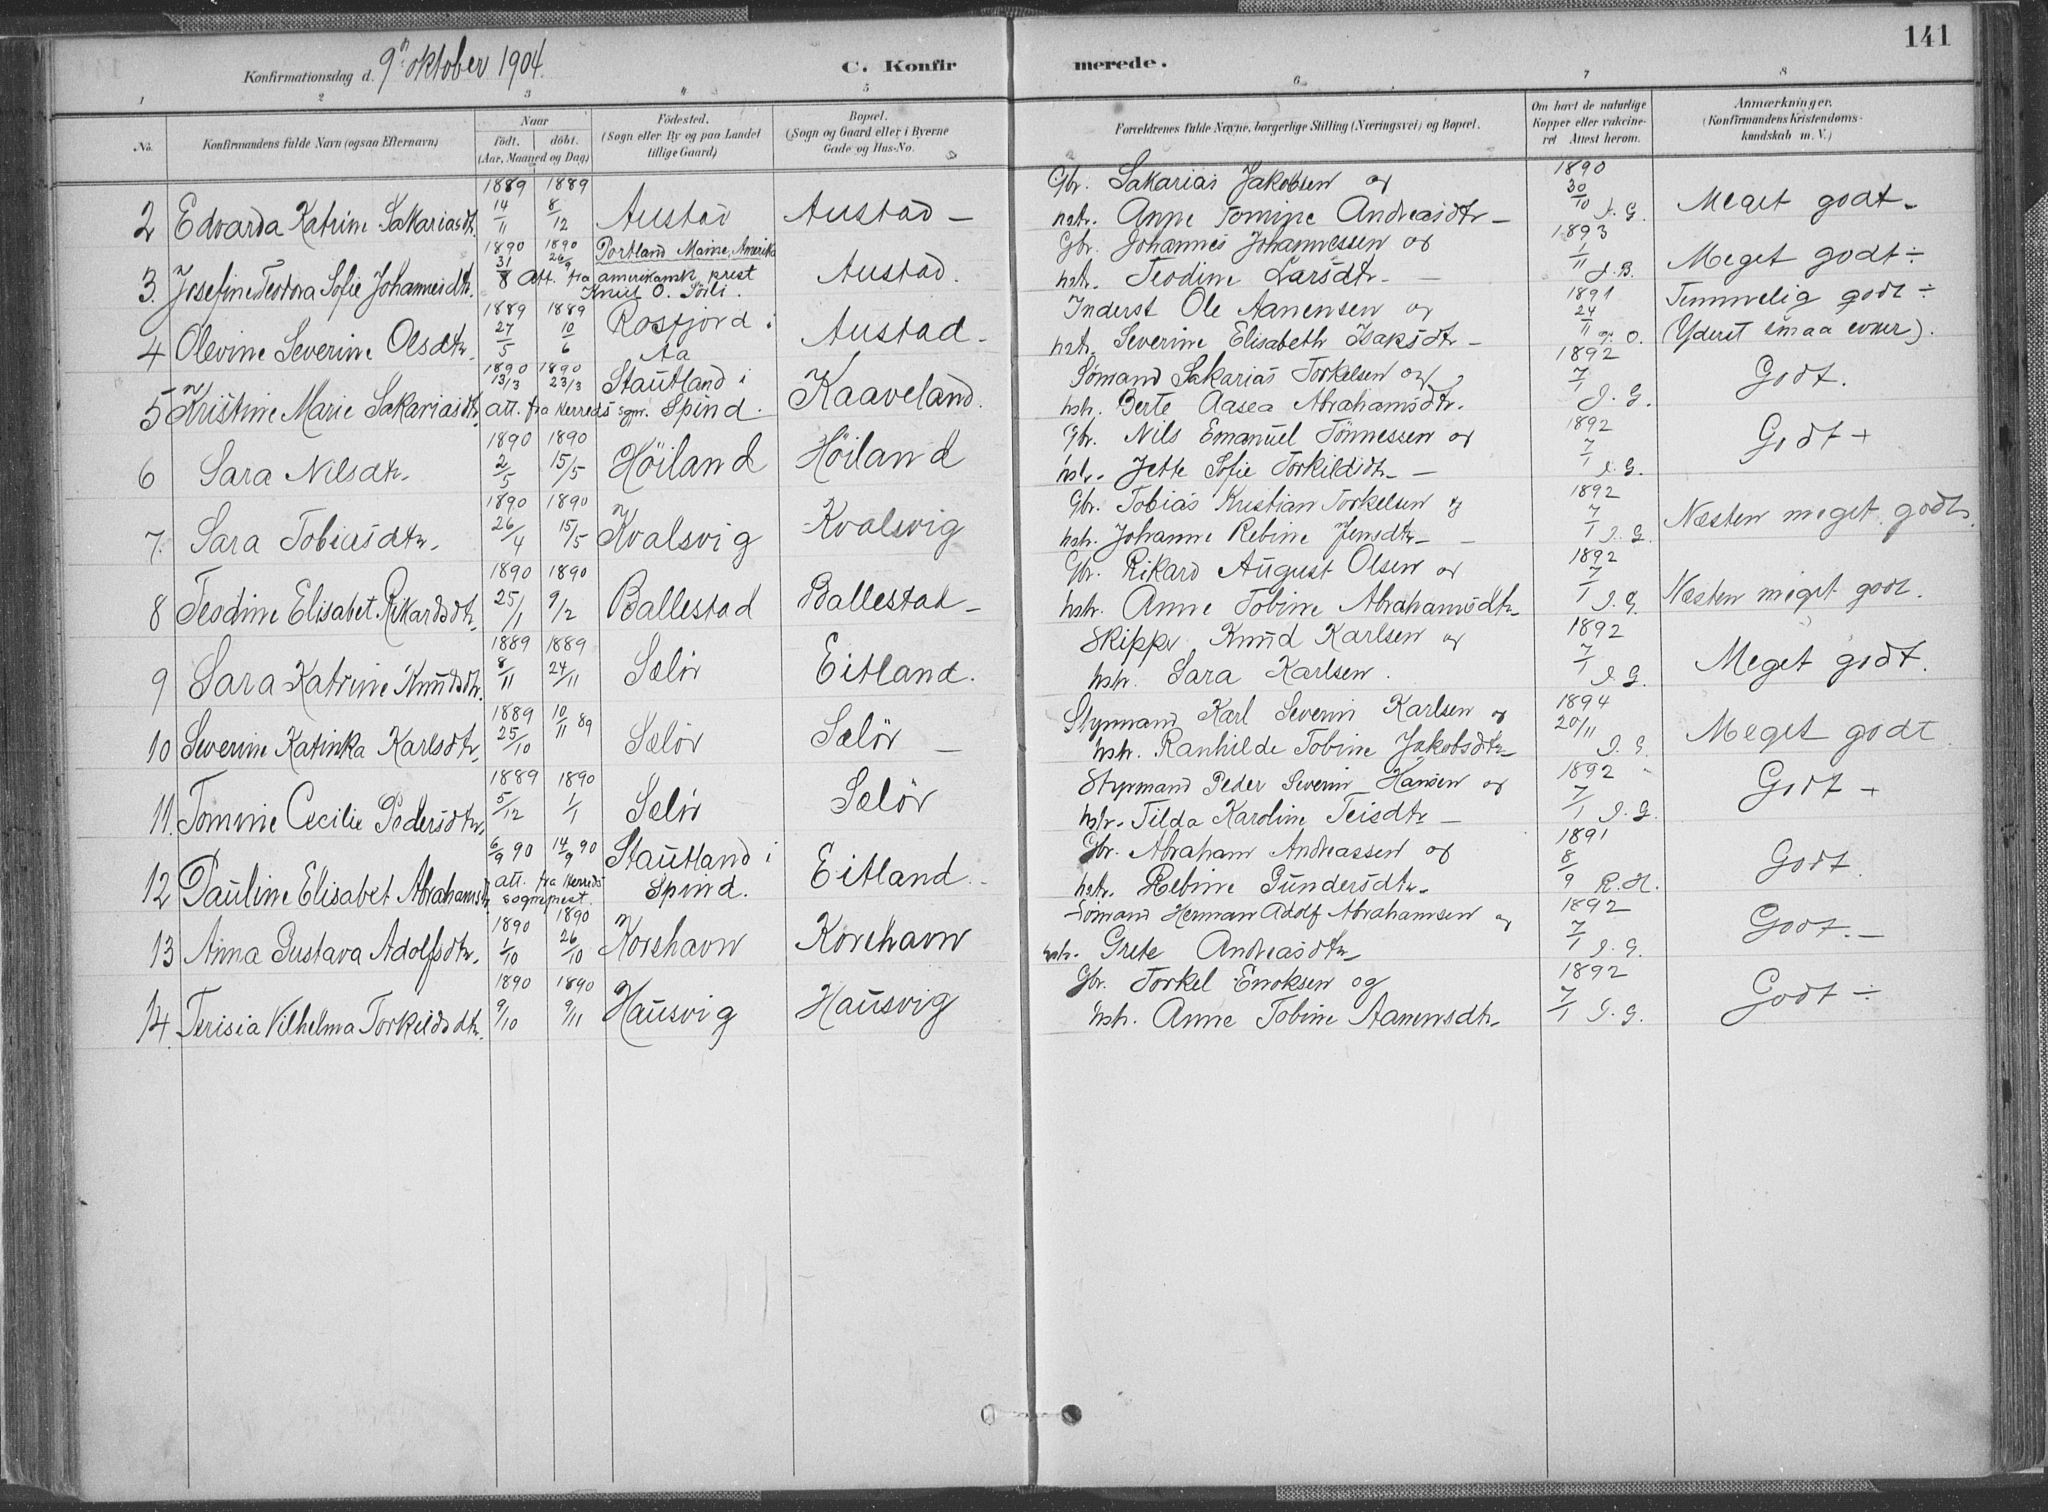 141
Konfirmationsdag d. 9n oktober 1904.
C. Konfirmerede.
1 2 3 4 5 6 7 8
No. Konfirmandens fulde Navn (ogsaa Efternavn) Naar født. døbt. (Aar, Maaned og Dag) Fødested. (Sogn eller By og paa Landet tillige Gaard) Bopæl. (Sogn og Gaard eller i Byerne Gade og Hus-No. Forældrenes fulde Navne, borgerlige Stilling (Næringsvei) og Bopæl. Om havt de naturlige Kopper eller vaccineret Attest herom. Anmærkninger. (Konfirmandens Kristendomskundskab m. V.)
1889 1889 Gbr. Sakarias Jakobsen og 1890
2 Edvarda Katrine Sakariasdtr. 14/11 8/12 Austad Austad — hstr. Anne Tomine Andreasdtr — 30/10 J. G. Meget godt -
1890 1890 Portland Maine, Amerika Gbr. Johannes Johannessen og 1893
3. Josefine Teodora Sofie Johannesdtr. 31/8 26/9 Att. fra amerikansk prest Knut O. Sörli. Austad. hstr. Teodine Larsdtr. — 1/11 J. B. Meget godt ÷
1889 1889 Rosfjord i Inderst Ole Aanensen og 1891 Temmelig godt ÷
4 Olevine Severine Olsdtr. 27/5 10/6 Aa Austad - hstr. Severine Elisabeth Isaksdtr — 24/11 O. (Yderst smaa evner).
1890 1890 Stautland i Sömand Sakarias Torkelsen og 1892
5 Kristine Marie Sakariasdtr. 13/3 23/3 att. fra Herreds sgpr. Spind. Kaaveland. hstr. Berte Aasea Abrahamsdtr. 7/1 J. G. Godt.
1890 1890 Gbr. Nils Emanuel Tönnessen og 1892
6 Sara Nilsdtr. 2/5 15/5 Höiland Höiland hstr. Jette Sofie Torkildsdtr — 7/1 J. G. Godt +
1890 1890 Gbr. Tobias Kristian Torkelsen og 1892
7. Sara Tobiasdtr. 26/4 15/5 Kvalsvig Kvalsvig hstr. Johanne Rebine Jensdtr — 7/1 J. G. Næsten meget godt.
1890 1890 Gbr. Rikard August Olsen og 1892
8 Teodine Elisabet Rikardsdtr. 25/1 9/2 Ballestad Ballestad — hstr. Anne Tobine Abrahamsdtr — 7/1 J. G. Næsten meget godt.
1889 1889 Skipper Knud Karlsen og 1892
9 Sara Katrine Knudsdtr. 8/11 24/11 Selör Eitland. hstr. Sara Karlsen. 7/1 J. G. Meget godt.
1889 10/11 89 Styrmand Karl Severin Karlsen og 1894
10 Severine Katinka Karlsdtr. 25/10 Selör Selör — hstr. Ranhilde Tobine Jakobsdtr — 20/11 J. G. Meget godt
1889 1890 Styrmand Peder Severin Hansen og 1892
11. Tomine Cecilie Pedersdtr. 5/12 1/1 Selör Selör hstr. Tilda Karoline Teisdtr — 7/1 J. G. Godt +
6/9 90 14/9 90 Stautland i Gbr. Abraham Andreassen og 1891
12 Pauline Elisabet Abrahamsdtr. att. fra Herreds sogneprest. Spind. Eitland. hstr. Rebine Gundersdtr. 8/9 R. H. Godt.
1890 1890 Sömand Herman Adolf Abrahamsen og 1892
13 Anna Gustava Adolfsdtr. 1/10 26/10 Korshavn Korshavn hstr. Grete Andreasdtr 7/1 J. G. Godt. —
1890 1890 Gbr. Torkel Enoksen og 1892
14. Terisia Vilhelma Torkildsdtr. 9/10 9/11 Hausvig Hausvig hstr. Anne Tobine Aanensdtr. 7/1 J. G. Godt ÷